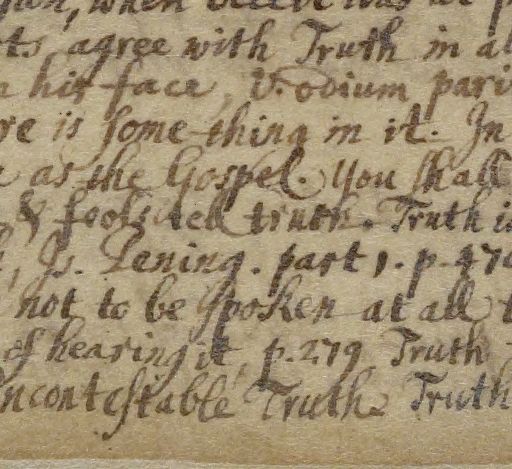 when
agree with Truth in
his face, V. odium
is some-thing in it. In
as the Gospel. You shall
& fools tell truth. Truth
Js. Janing. part 1. p.
not to be spoken at all
of hearing it, p. 279 Truth
incontestable Truth. Truth